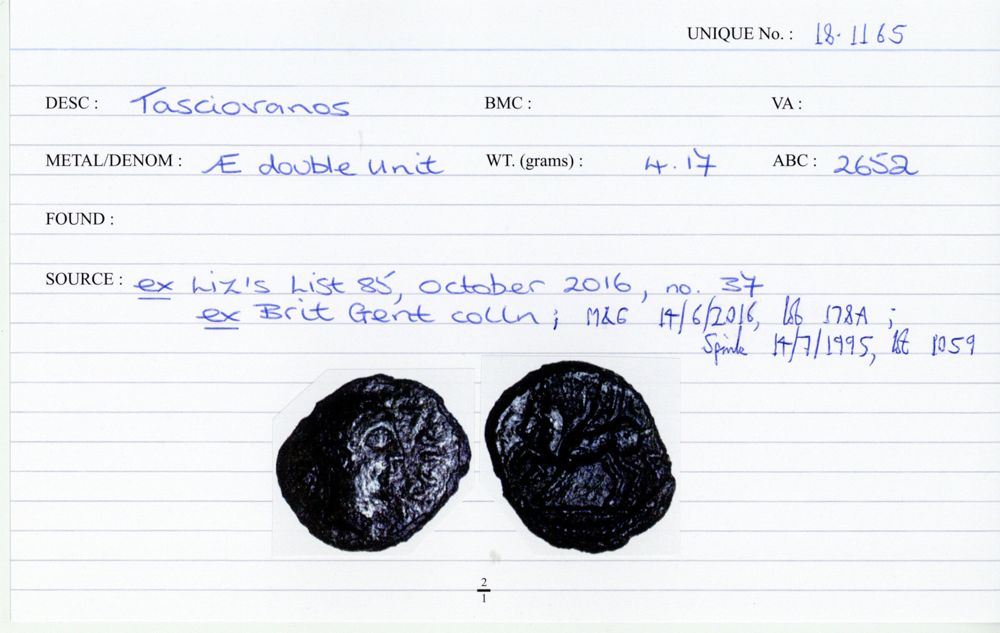 UNIQUE No. : 18.1165
DESC : Tasciovanos BMC : VA :
METAL/DENOM : Æ double unit WT. (grams) : 4.17 ABC : 2652
FOUND :
SOURCE : ex Liz's List 85, october 2016, no. 37
ex Brit Gent colln ; M&G 14/6/2016, 178A ;
Spink 14/7/1995, lot 1059
2
1